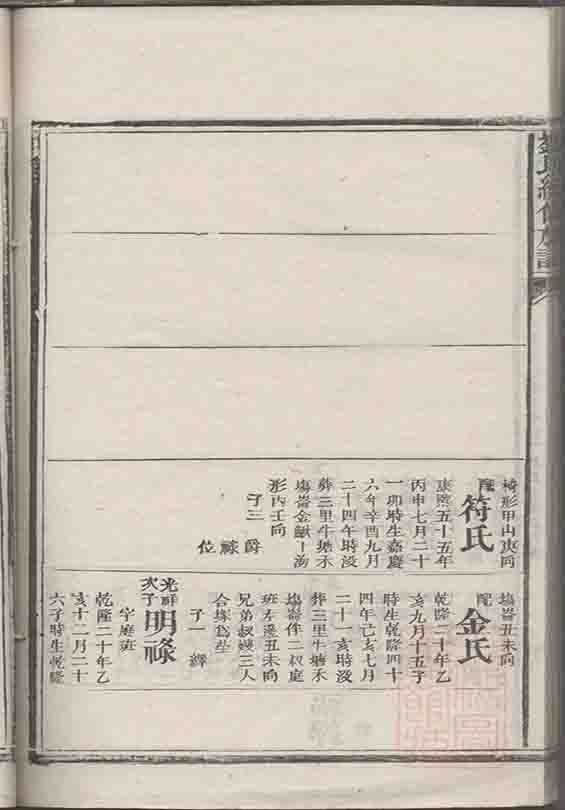 氏續修族譜
椅形甲山庚向
配
符氏
康熙五十五年
丙申七月二十
一卯時生嘉慶
六年辛酉九月
二十四年時沒
葬三里牛塘禾
塲崙金
形丙壬向
子三
爵
祿
位
塲崙丑未向
配
金氏
乾隆二十年乙
亥九月十五子
時生乾隆四十
四年己亥七月
二十一亥時沒
葬三里牛塘禾
塲崙伴二叔庭
班左邊丑未向
兄弟叔嫂三人
合塚為塋
子一
繹
光祥
次子
明祿
字庭班
乾隆二十年乙
亥十二月二十
六子時生乾隆